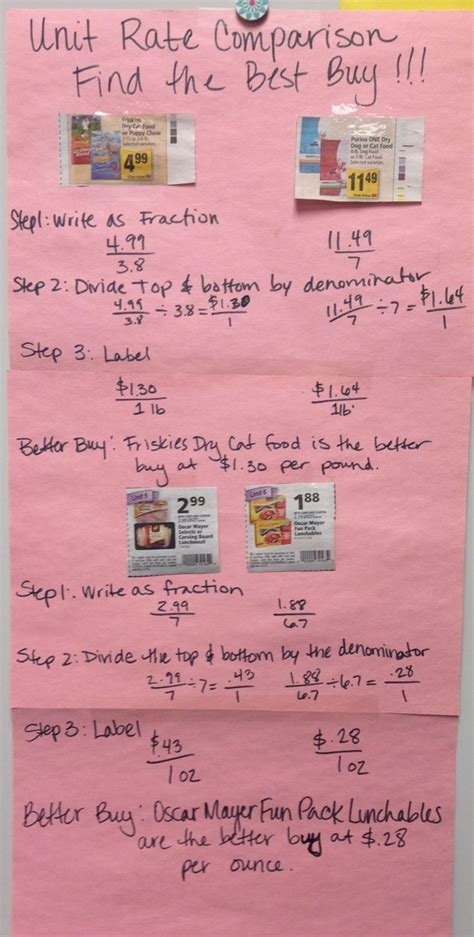 Unit Rate Comparison
Find the Best Buy !!!
Friskies
Dry Cat Food
or Puppy Chow
Selected varieties.
4.99
Purina ONE Dry
Dog or Cat Food
8 lb. Dog Food
or 7 lb. Cat Food
Selected varieties.
11.49
Step 1: Write as Fraction
4.99
3.8
11.49
7
Step 2: Divide top & bottom by denominator
4.99/3.8 ÷ 3.8 = $1.30/1
11.49/7 ÷ 7 = $1.64/1
Step 3: Label
$1.30
1 lb
$1.64
1 lb
Better Buy: Friskies Dry Cat food is the better
buy at $1.30 per pound.
Limit 5
2.99
Oscar Mayer
Selects or
Carving Board
Lunchmeat
Limit 5
1.88
Oscar Mayer
Fun Pack
Lunchables
Step 1: Write as fraction
2.99
7
1.88
6.7
Step 2: Divide the top & bottom by the denominator
2.99/7 ÷ 7 = .43/1
1.88/6.7 ÷ 6.7 = .28/1
Step 3: Label
$.43
1 oz
$.28
1 oz
Better Buy: Oscar Mayer Fun Pack Lunchables
are the better buy at $.28
per ounce.